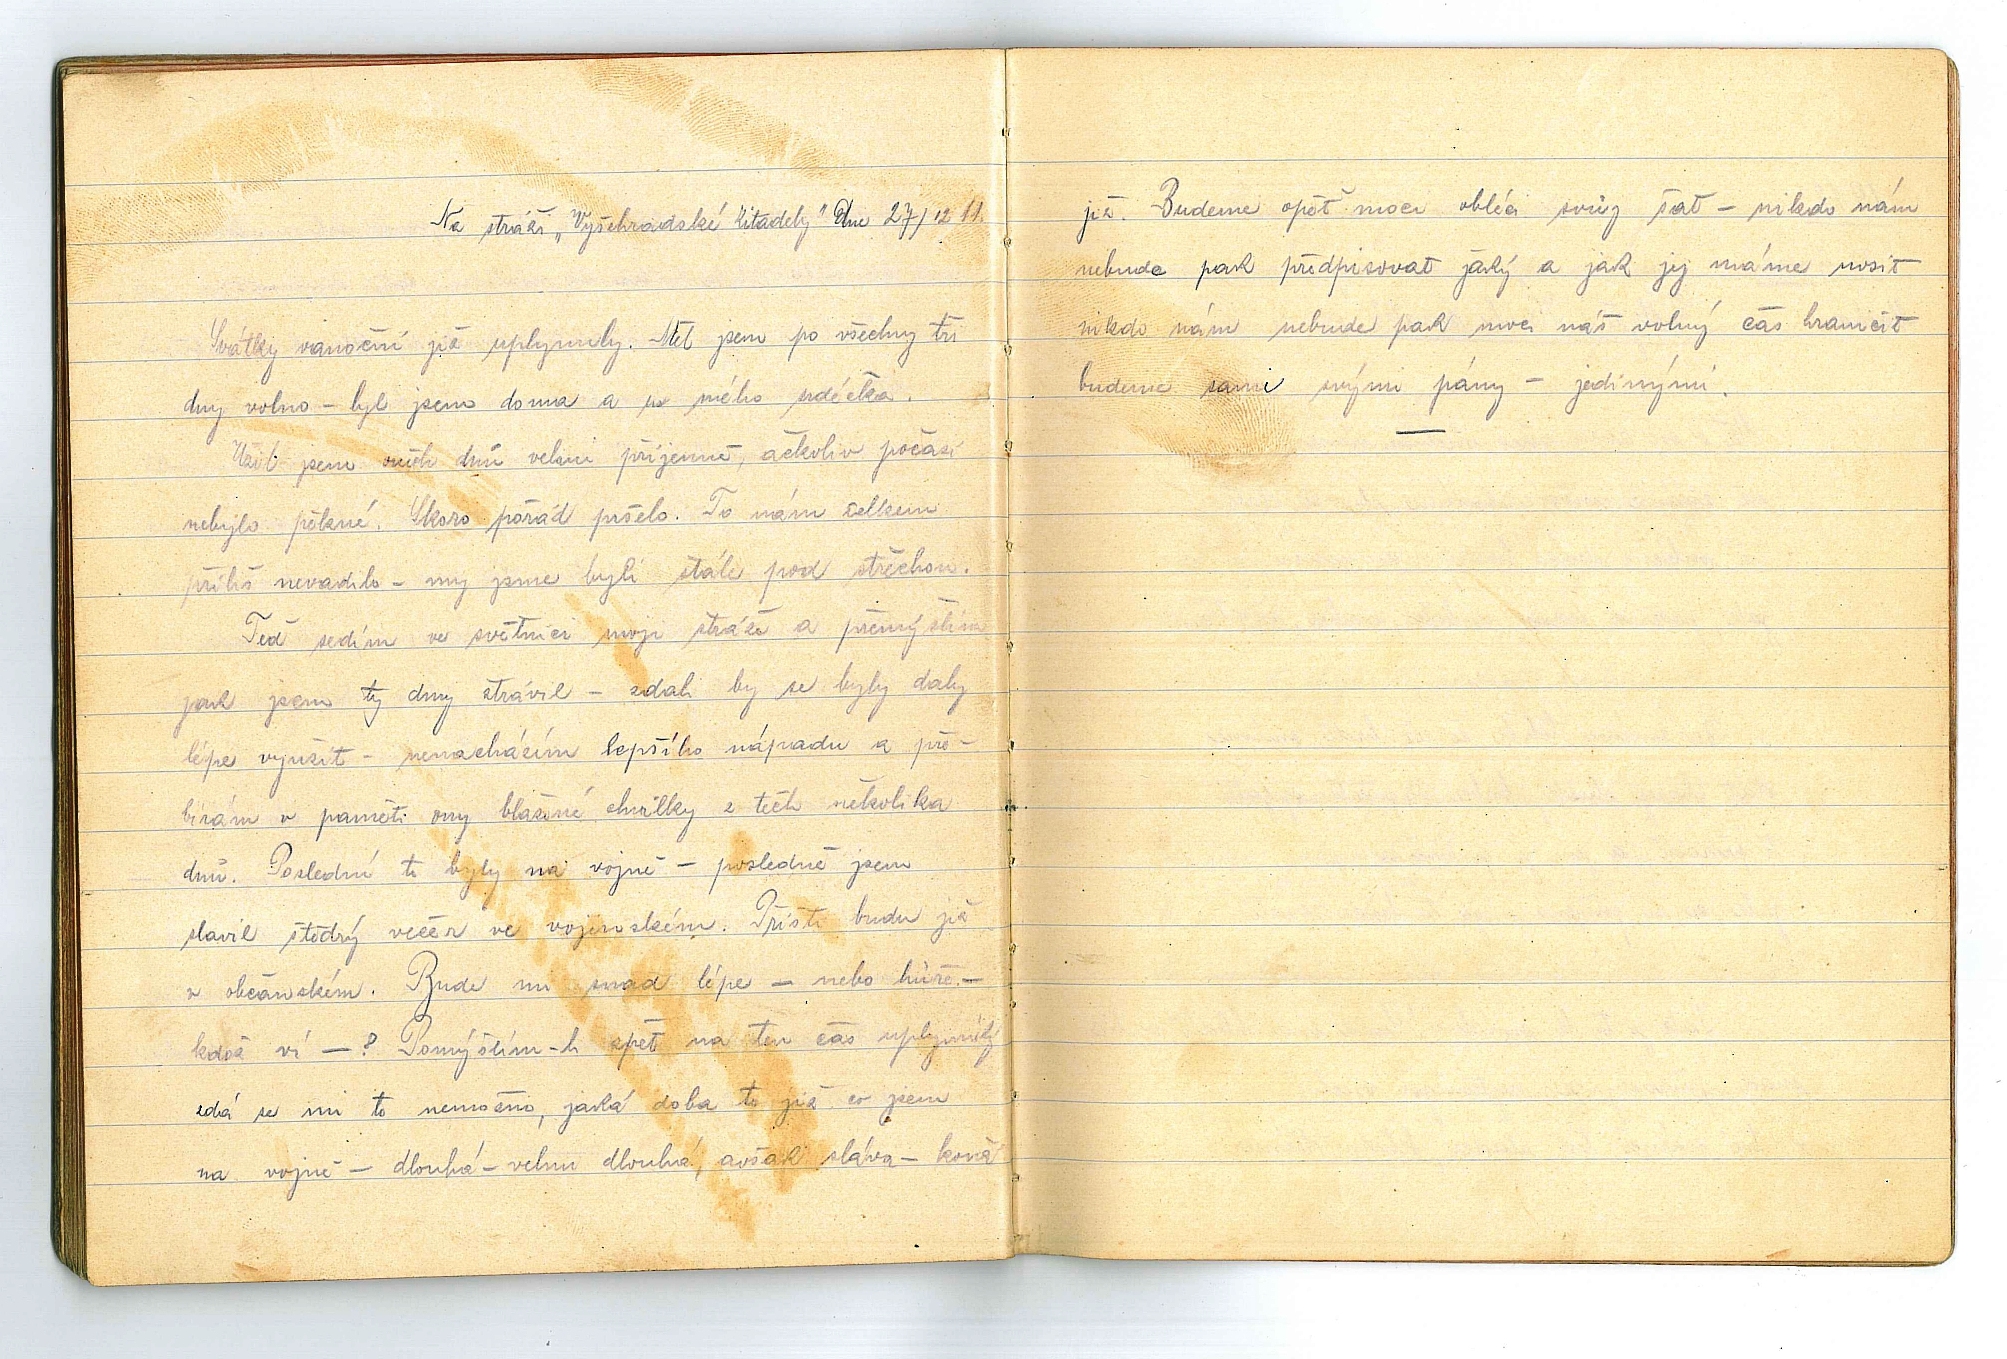 Na stráži „Vyšehradské citadely" Dne 27/12 11.
Svátky vanoční již uplynuly. Měl jsem po všechny tři
dny volno – byl jsem doma a u mého srdéčka.
Užil jsem oněch dnů velmi příjemně, ačkoliv počasí
nebylo pěkné. Skoro pořád pršelo. To nám celkem
příliš nevadilo – my jsme byli stále pod střechou.
Teď sedím ve světnici moji stráže a přemýšlím
jak jsem ty dny strávil – zdali by se byly daly
lépe využít – nenacházím lepšího nápadu a pře-
bírám v paměti ony blažené chvilky z těch několika
dnů. Poslední to byly na vojně – posledně jsem
slavil štědrý večer ve vojenském. Příště budu již
v občanském. Bude mi snad lépe – nebo hůře –
kdož ví – ? Pomýšlím-li zpět na ten čas uplynulý
zdá se mi to nemožno, jaká doba to již co jsem
na vojně – dlouhá – velmi dlouhá, avšak sláva – končí
již. Budeme opět moci obléci svůj šat – nikdo nám
nebude pak předpisovat jaký a jak jej máme nosit
nikdo nám nebude pak moci náš volný čas hraničit
budeme sami svými pány – jedinými.